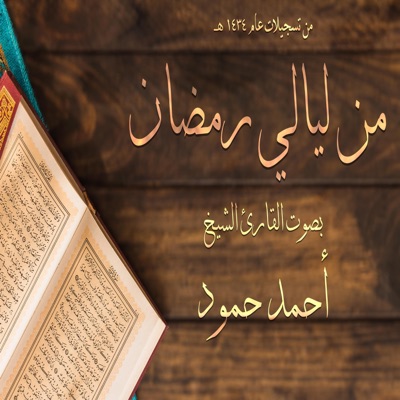 من تسجيلات عام ١٤٣٤ هـ
من ليالي رمضان
بصوت القارئ الشيخ
أحمد حمود